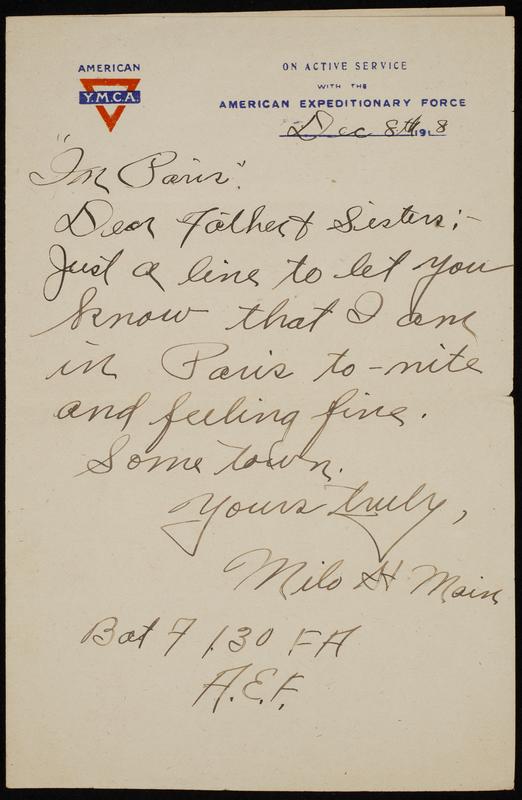 AMERICAN
Y.M.C.A.
ON ACTIVE SERVICE
WITH THE
AMERICAN EXPEDITIONARY FORCE
Dec 8th 1918
"In Paris".
Dear Father & Sisters;-
Just a line to let you
know that I am
in Paris to-nite
and feeling fine.
Some town.
Yours truly,
Milo H Main
Bat F 130 FA
A.E.F.